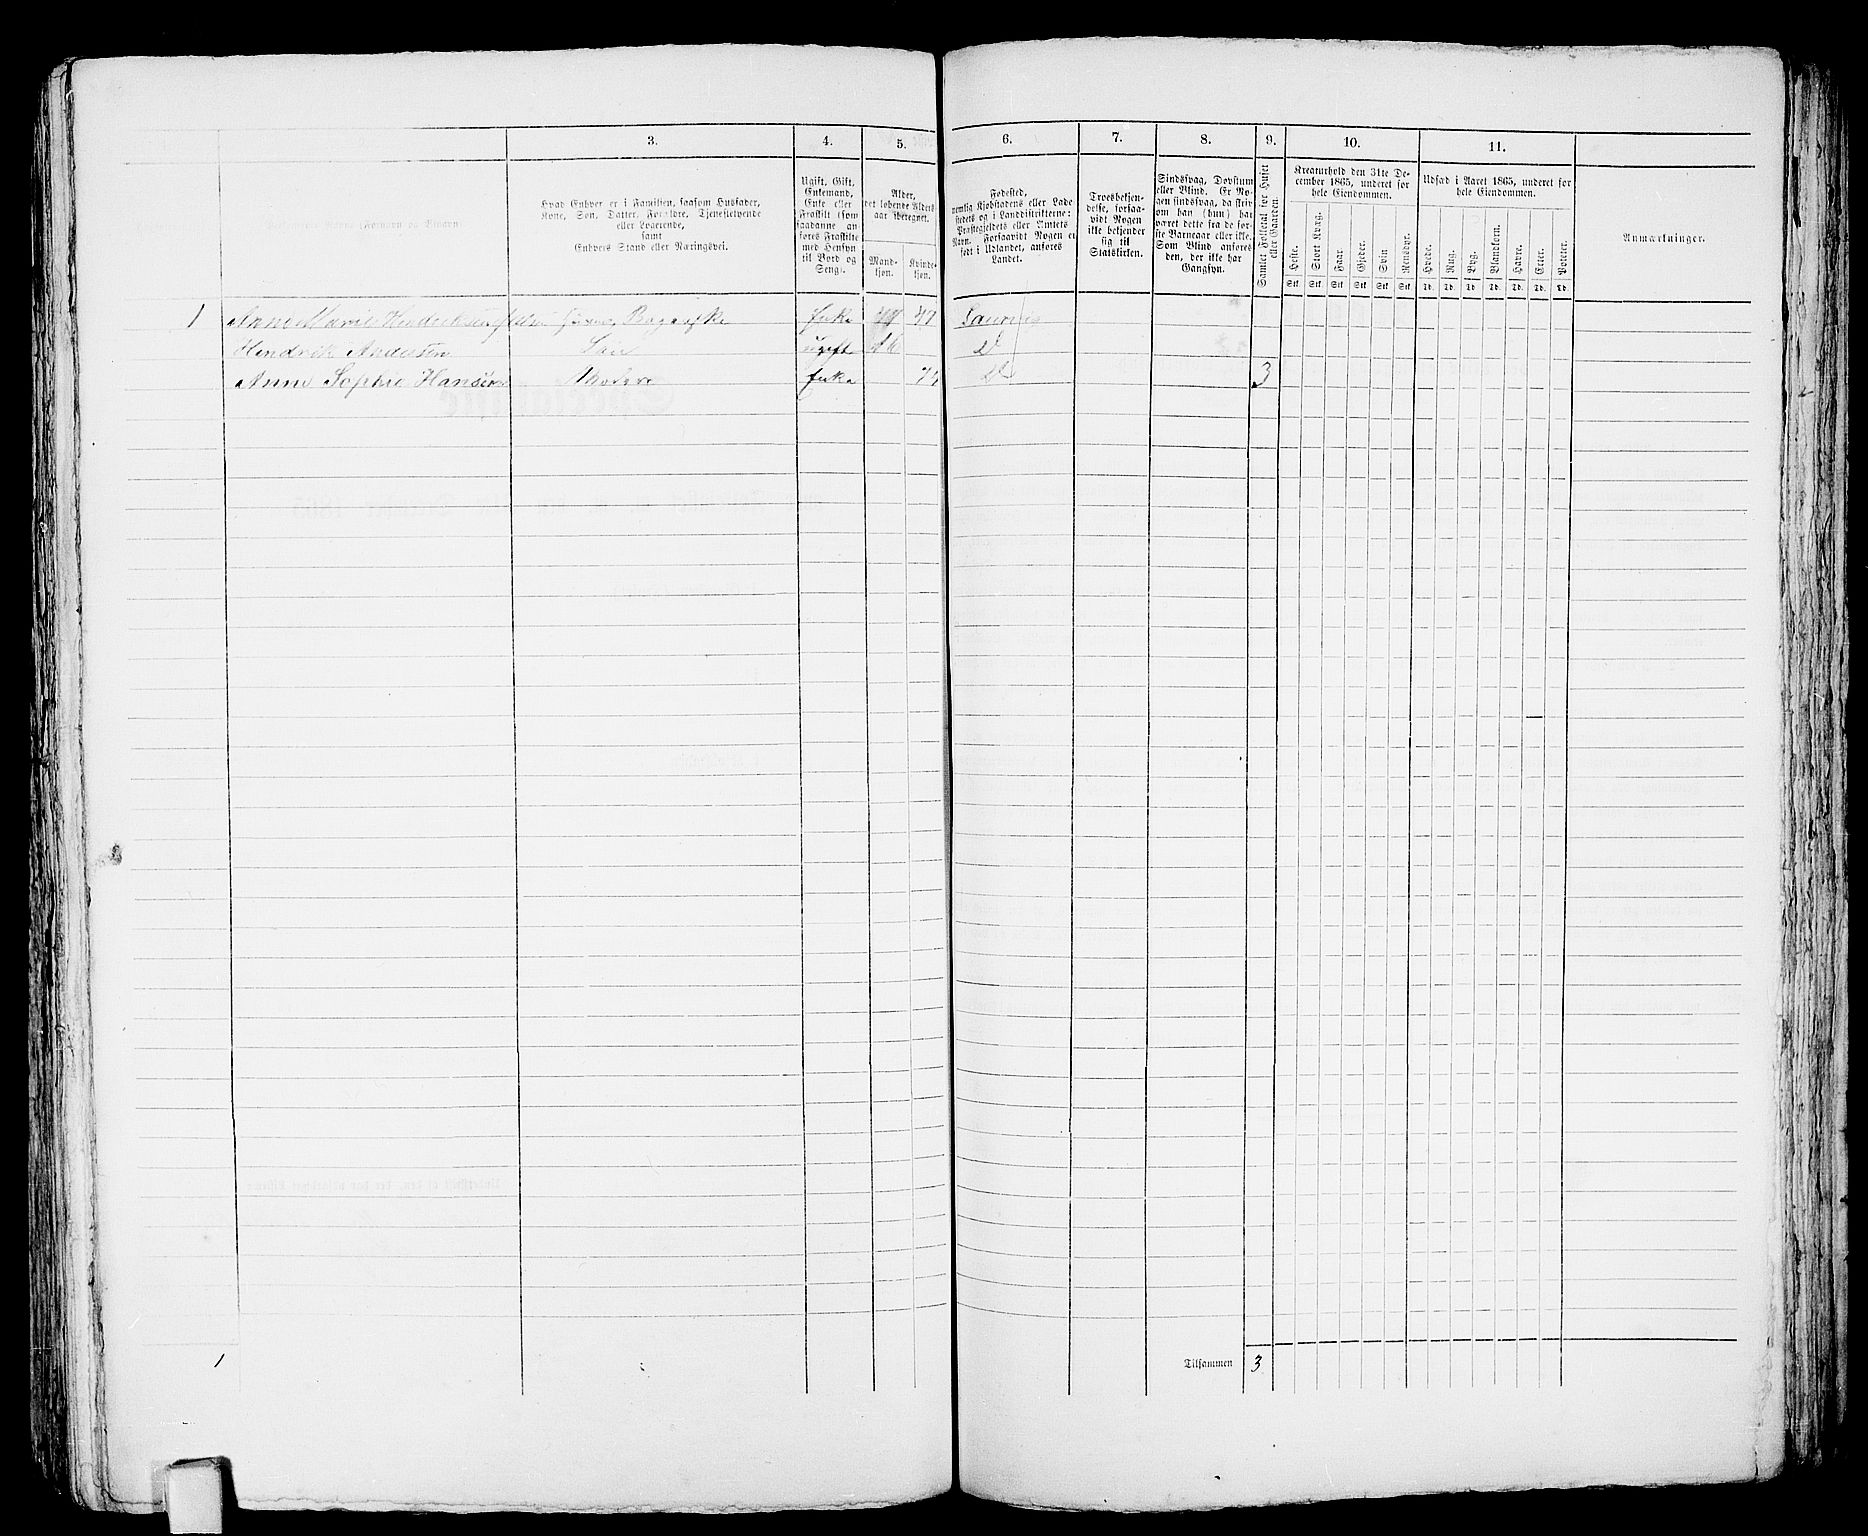 3.
4.
5.
6.
7.
8.
9.
10.
11.
Hvad Enhver er i Familien, saasom Husfader,
Kone, Søn, Datter, Forældre, Tjenestetyende
eller Logerende,
samt
Enhvers Stand eller Næringsvei.
Ugift, Gift,
Enkemand,
Enke eller
Fraskilt (som
saadanne an-
føres Fraskilte
med Hensyn
til Bord og
Seng).
Alder,
det løbende Alders-
aar iberegnet.
Mand-
kjøn.
Kvinde-
kjøn.
Fødested,
nemlig Kjøbstadens eller Lade-
stedets og i Landdistrikterne:
Præstegjeldets eller Amtets
Navn. Forsaavidt Nogen er
født i Udlandet, anføres
Landet.
Troesbekjen-
delse, forsaa-
vidt Nogen
ikke bekjender
sig til
Statskirken.
Sindssvag, Døvstum
eller Blind. Er No-
gen sindssvag, da skriv
om han (hun) har
været dette fra de før-
ste Barneaar eller ikke.
Som Blind anføres
den, der ikke har
Gangsyn.
Samlet Folketal for Huset
eller Gaarden.
Kreaturhold den 31te De-
cember 1865, underet for
hele Eiendommen.
Heste.
Stort Kvæg.
Faar.
Gjeder.
Svin.
Rensdyr.
Udsæd i Aaret 1865, underet for
hele Eiendommen.
Hvede.
Rug.
Byg.
Blandkorn.
Havre.
Erter.
Poteter.
Anmærkninger.
Stk. Stk. Stk. Stk. Stk. Stk. Td. Td. Td. Td. Td. Td. Td.
1 Anne Marie Enke 47
Hendrik Andersen Søn ugift D
Anne Sophie Hansen Moder Enke D 3
1 Tilsammen 3